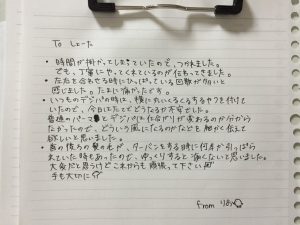 To しょーた
• 時間が掛かってしまっていたので、つかれました。
でも、丁寧にやってくれているのが伝わってきました。
• 左右を合わせる時にひっぱっている回数が多いと
感じました。たまに痛かったです。
• いつものデジパの時は、横に丸くくるくるするやつを付けて
いたので、今日はたてでどうなるか不安でした。
普通のパーマとデジパは仕上がりが変わるのか分から
なかったので、どういう風になるのかなども細かく伝えて
欲しいと思いました。
• 首の後ろの髪の毛が、ターバンをする時に何本か引っぱら
れていた時もあったので、ゆっくりすると痛くないと思いました。
大変だと思うけどこれからも頑張って下さい
手も大切に
from りほ